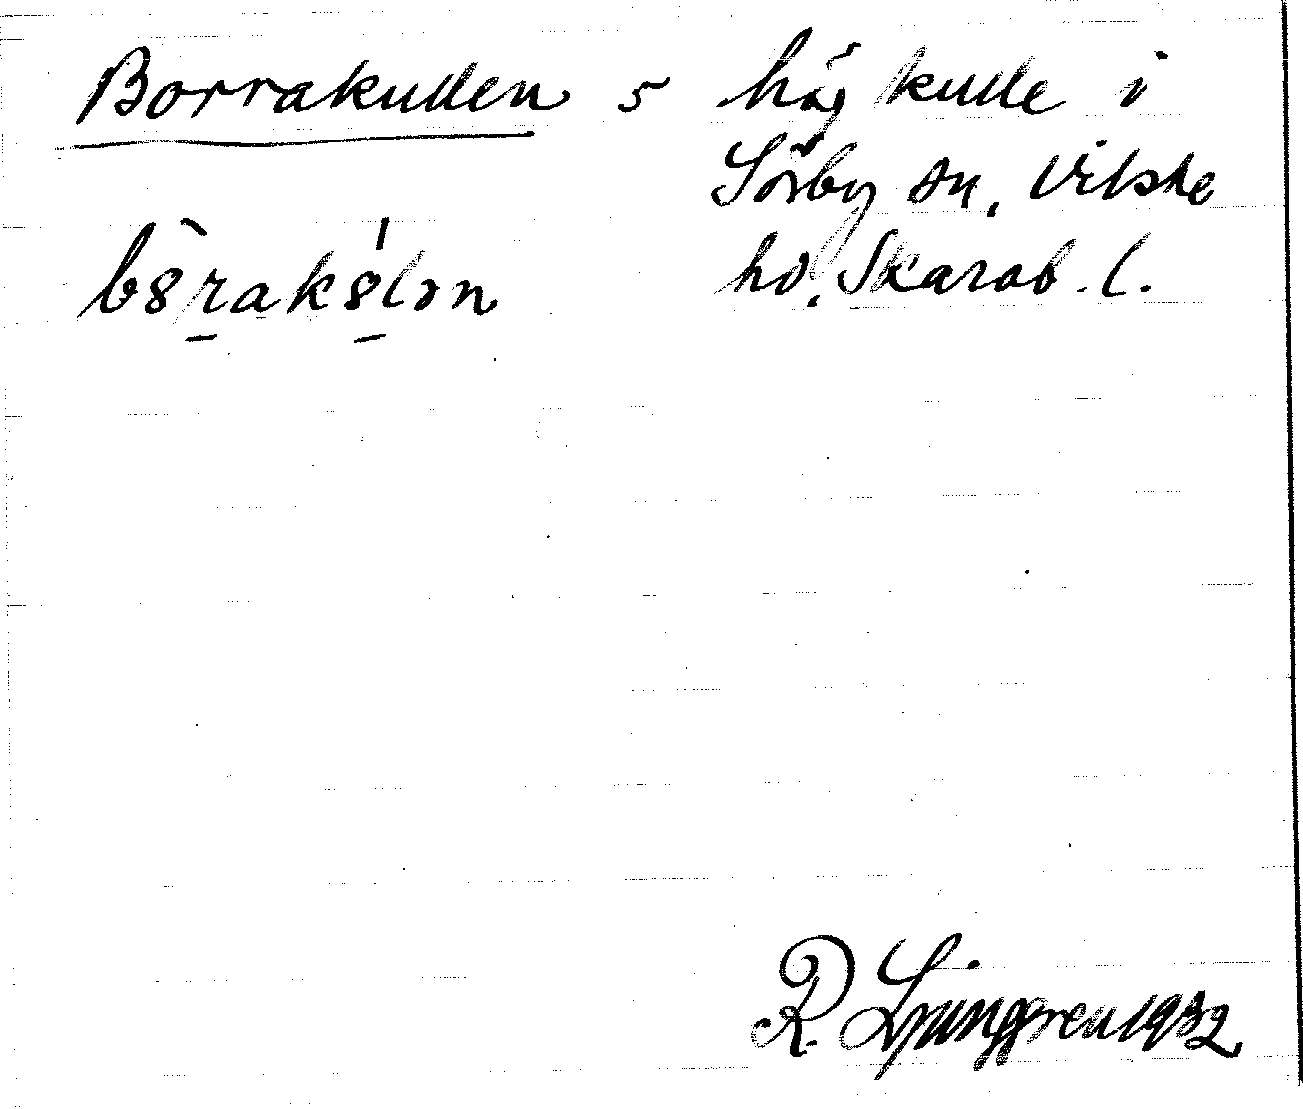 Borrakullen s hög kulle i
Sörby sn, Vilske
hd, Skarab. l.
b8̀rak8́lən
R. Ljunggren 1932